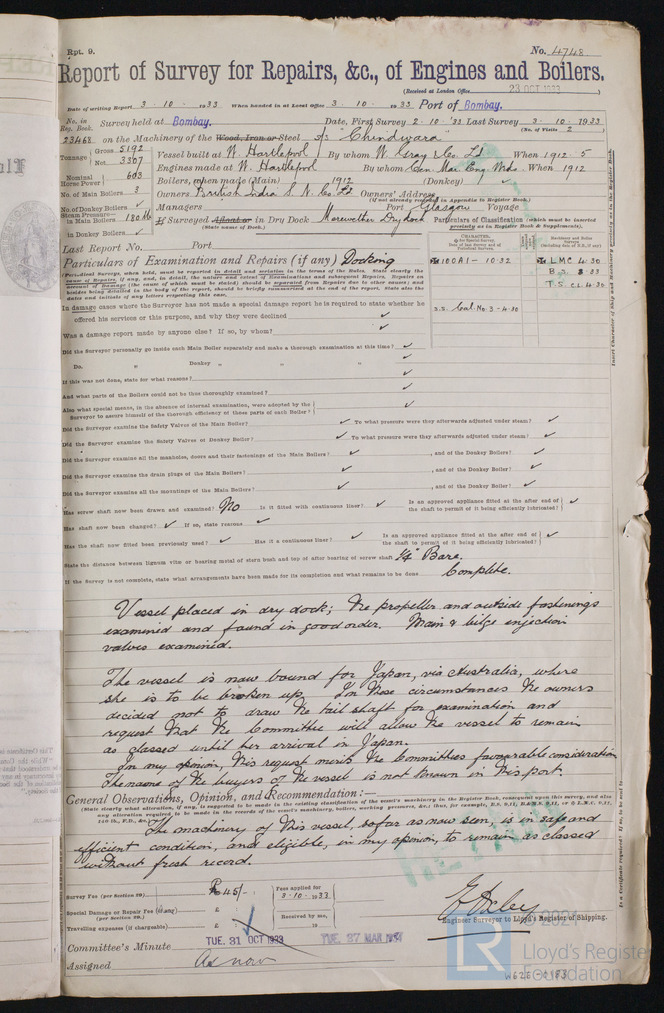 Rpt. 9.
No. 4748
Report of Survey for Repairs, &c., of Engines and Boilers.
(Received at London Office 23 OCT 1933
Date of writing Report 3 - 10 - 1933 When handed in at Local Office 3 - 10 - 1933 Port of Bombay.
No. in Reg. Book. Survey held at Bombay. Date, First Survey 2-10-33 Last Survey 3-10-1933
(No. of Visits 2 )
23468 on the Machinery of the Wood, Iron or Steel s/s "Chindwara"
Tonnage Gross 5192 Net 3307
Vessel built at W. Hartlepool By whom W. Gray & Co. Ld When 1912 . 5
Engines made at W. Hartlepool By whom Cen. Mar. Eng. Wks. When 1912
Nominal Horse Power 603
Boilers, when made (Main) 1912 (Donkey) ✓
No. of Main Boilers 3 Owners British India S. N. Co. Ld Owners' Address
(If not already recorded in Appendix to Register Book.)
No. of Donkey Boilers ✓ Managers Port Glasgow Voyage
Steam Pressure in Main Boilers 180 lbs If Surveyed Afloat or in Dry Dock Merewether Dry Dock
(State name of Dock.)
in Donkey Boilers ✓
Particulars of Classification (which must be inserted precisely as in Register Book & Supplements).
Last Report No. Port
Particulars of Examination and Repairs (if any) Docking
100A1 - 10.32
LMC 4.30
B.S. 3.33
T.S. CL 4.30
S.S. Cal. No. 3 - 4.30
In damage cases where the Surveyor has not made a special damage report he is required to state whether he
offered his services or this purpose, and why they were declined ✓
Was a damage report made by anyone else? If so, by whom? ✓
Did the Surveyor personally go inside each Main Boiler separately and make a thorough examination at this time? ✓
Do. " Donkey " " " ✓
If this was not done, state for what reasons? ✓
And what parts of the Boilers could not be thus thoroughly examined? ✓
Also what special means, in the absence of internal examination, were adopted by the
Surveyor to assure himself of the thorough efficiency of those parts of each Boiler? ✓
Did the Surveyor examine the Safety Valves of the Main Boiler? ✓ To what pressure were they afterwards adjusted under steam? ✓
Did the Surveyor examine the Safety Valves of Donkey Boiler? ✓ To what pressure were they afterwards adjusted under steam? ✓
Did the Surveyor examine all the manholes, doors and their fastenings of the Main Boilers? ✓ , and of the Donkey Boilers? ✓
Did the Surveyor examine the drain plugs of the Main Boilers? ✓ , and of the Donkey Boiler? ✓
Did the Surveyor examine all the mountings of the Main Boilers? ✓ , and of the Donkey Boiler? ✓
Has screw shaft now been drawn and examined? No Is it fitted with continuous liner? ✓ Is an approved appliance fitted at the after end of the shaft to permit of it being efficiently lubricated? ✓
Has shaft now been changed? ✓ If so, state reasons ✓
Has the shaft now fitted been previously used? ✓ Has it a continuous liner? ✓ Is an approved appliance fitted at the after end of the shaft to permit of it being efficiently lubricated? ✓
State the distance between lignum vitæ or bearing metal of stern bush and top of after bearing of screw shaft 1/4" Bare.
If the Survey is not complete, state what arrangements have been made for its completion and what remains to be done Complete.
Vessel placed in dry dock; the propeller and outside fastenings
examined and found in good order. Main & bilge injection
valves examined.
The vessel is now bound for Japan, via Australia, where
she is to be broken up. In these circumstances the owners
decided not to draw the tail shaft for examination and
request that the Committee will allow the vessel to remain
as classed until her arrival in Japan.
In my opinion, this request merits the Committees favourable consideration
The name of the buyers of the vessel is not known in this port.
General Observations, Opinion, and Recommendation:—
The machinery of this vessel, so far as now seen, is in safe and
efficient condition, and eligible, in my opinion, to remain as classed
without fresh record.
Survey Fee (per Section 29) Rs 45/-
Fees applied for 3-10-1933
Special Damage or Repair Fee (if any) £
(per Section 29.)
Received by me,
Travelling expenses (if chargeable) £ 19
Engineer Surveyor to Lloyd's Register of Shipping.
Committee's Minute TUE. 31 OCT 1933 TUE. 27 MAR 1934
Assigned As now
© 2021
LR
Lloyd's Register
Foundation
W626-0183